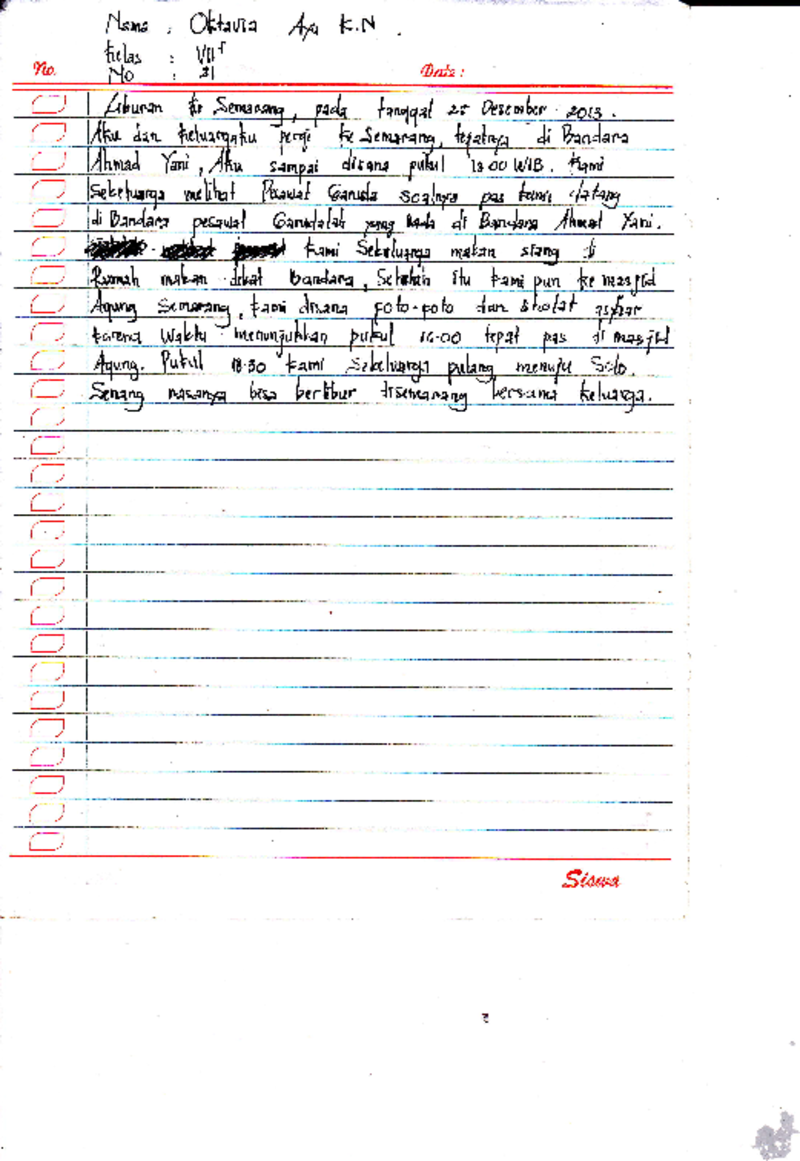 Nama : Oktavia Ayu K.N.
Kelas : VII F
No : 21
No. Date:
Liburan ke Semarang, pada tanggal 25 Desember 2013.
Aku dan keluargaku pergi ke Semarang, tepatnya di Bandara
Ahmad Yani, Aku sampai disana pukul 13.00 WIB. Kami
Sekeluarga melihat Pesawat Garuda soalnya pas kami datang
di Bandara pesawat Garudalah yang di Bandara Ahmad Yani.
Kami Sekeluarga makan siang di
Rumah makan dekat Bandara, Setelah itu kami pun ke masjid
Agung Semarang, kami disana foto-foto dan sholat ashar
karena Waktu menunjukkan pukul 16.00 tepat pas di masjid
Agung. Pukul 18.30 kami Sekeluarga pulang menuju Solo.
Senang rasanya bisa berlibur disemarang bersama keluarga.
Siswa